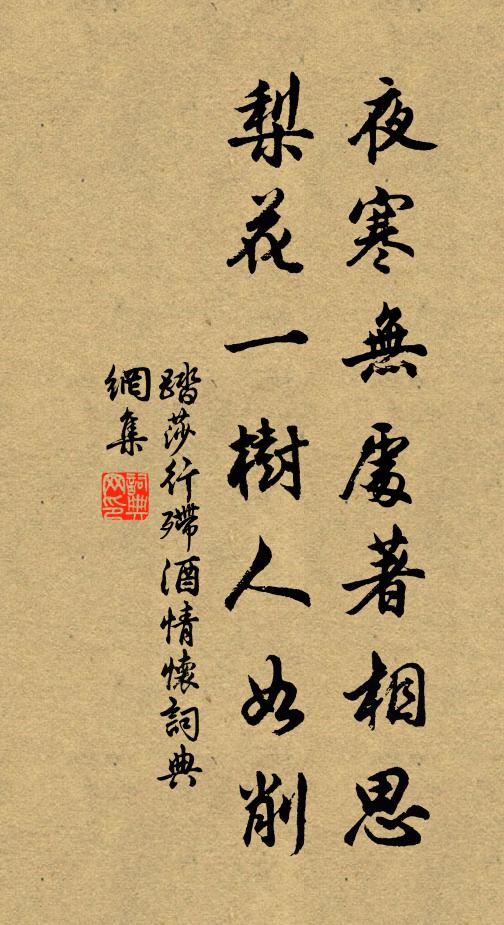 夜寒無處著相思
梨花一樹人如削
踏莎行殢酒情懷詞典
網集
詞典
网印